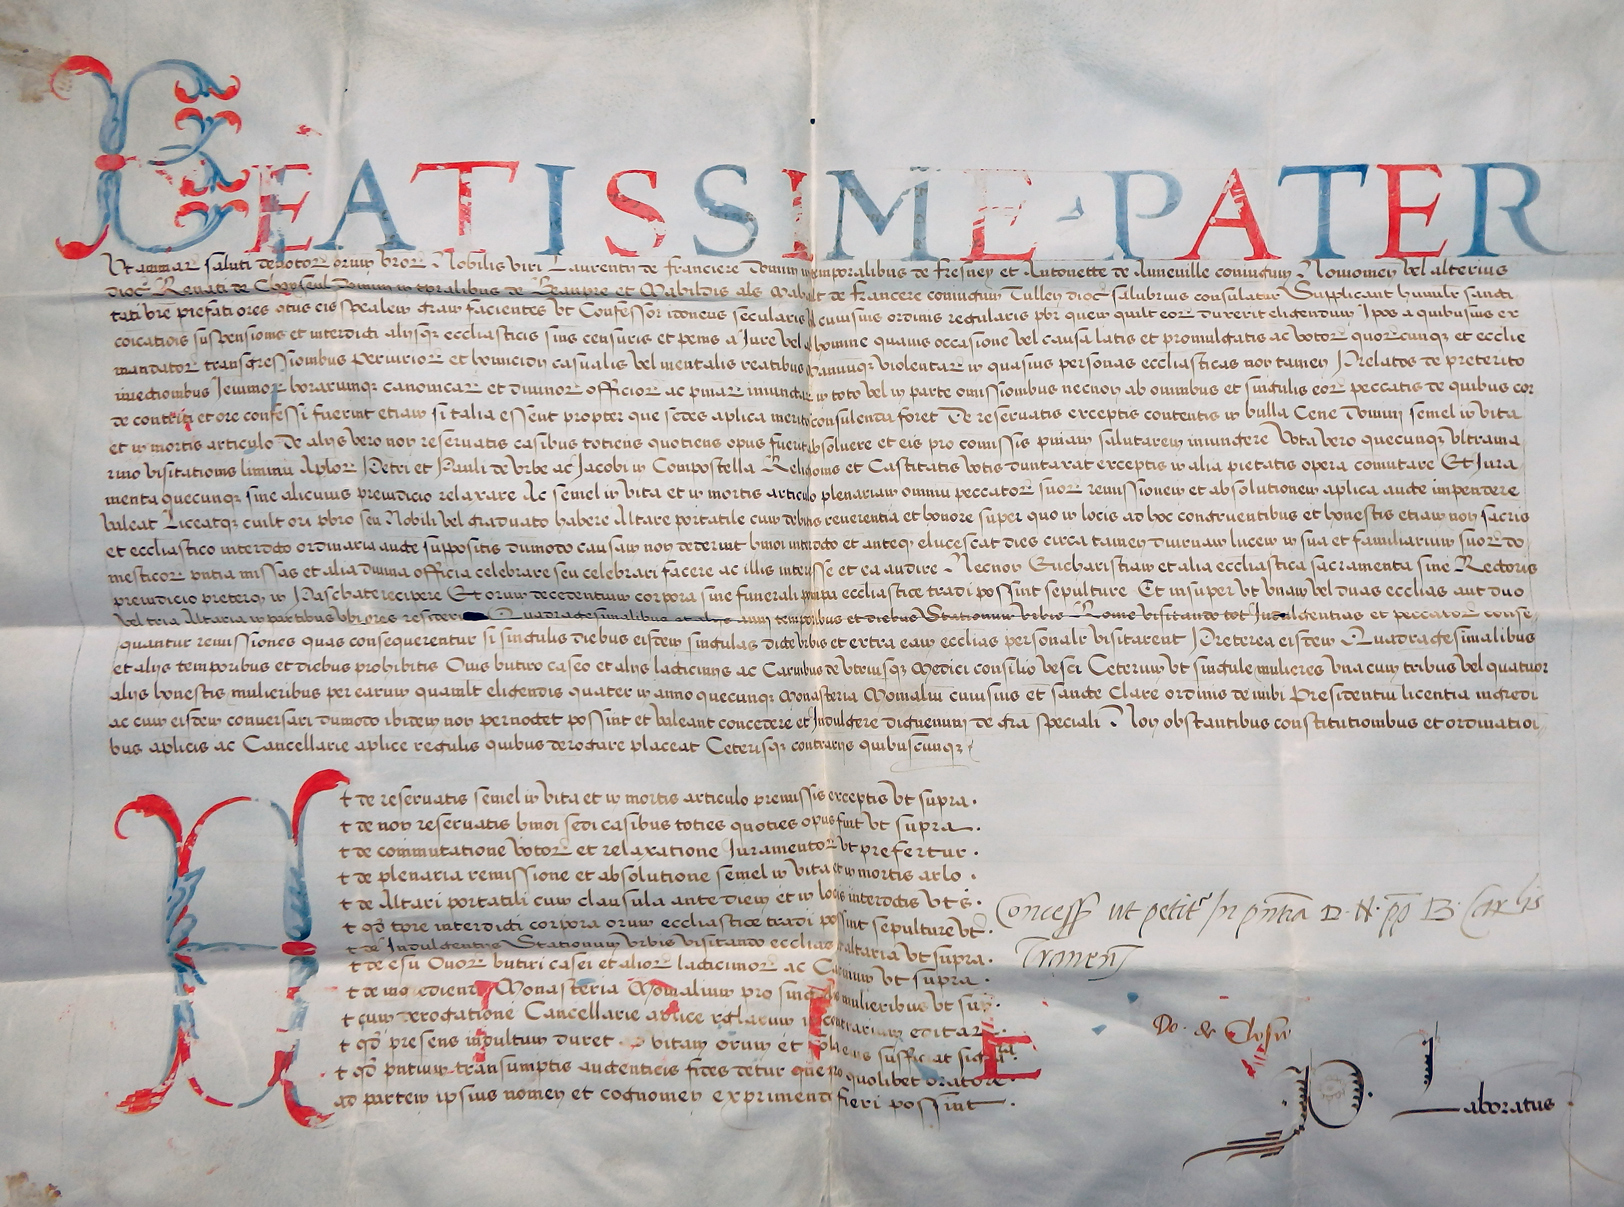 BEATISSIME PATER
Ut animar saluti devotor orum vror Nobilis viri Laurentij de franciere Domini in temporalibus de fresney et Antonette de Anneville coniugum Noviomen vel alterius
dioc Renati de Choyseul Domini in tpralibus de Beaupre et Mabildis als de francere coniugum Tullen dioc salubrius consulatur Supplicant humilr sancti
tati vre prefati ores qtus eis spealem gram facientes ut Confessor idoneus secularis vel cuiusvis ordinis regularis pbr quem qualt eor duxerit eligendum Ipos a quibusvis ex
coicatiois suspensionis et interdicti alijsqz eccliasticis snis censuris et penis a Jure vel ab homine quavis occasione vel causa latis et promulgatis ac votor quorcunqz et ecclie
mandator transgressionibus periurior et homicidij casualis vel mentalis reatibus manuuqz violentar in quasvis personas ecclesiasticas non tamen Prelatos de preterito
iniectionibus Jeiunior horarumqz canonicar et divinor officior ac pniar iniunctar in toto vel in parte omissionibus necnon ab omnibus et singulis eor peccatis de quibus cor
de contriti et ore confessi fuerint etiam si talia essent propter que sedes aplica merito consulenda foret De reservatis exceptis contentis in bulla Cene Domini semel in vita
et in mortis articulo De alijs vero non reservatis casibus totiens quotiens opus fuerit absolvere et eis pro comissis pniam salutarem iniungere Vota vero quecunqz Ultrama
rino visitationis liminu Aplor Petri et Pauli de Urbe ac Jacobi in Compostella Religionis et Castitatis votis duntaxat exceptis in alia pietatis opera comutare Et Jura
menta quecunqz sine alicuius preiudicio relaxare Ac semel in vita et in mortis articulo plenariam omniu peccator suor remissionem et absolutionem aplica aucte impendere
valeat Liceatqz cuilt ori pbro seu Nobili vel graduato habere Altare portatile cum debitis reverentia et honore super quo in locis ad hoc congruentibus et honestis etiam non sacris
et eccliastico interdicto ordinaria aucte suppositis dumodo causam non dederint hmoi interdicto et anteqz elucescat dies circa tamen diurnam lucem in sua et familiarium suor do
mesticor pntia missas et alia divina officia celebrare seu celebrari facere ac illis interesse et ea audire Necnon Eucharistiam et alia eccliastica sacramenta sine Rectoris
preiudicio preterqz in Paschate recipere Et orum decedentium corpora sine funerali pompa eccliastice tradi possint sepulture Et insuper ut unam vel duas ecclias aut duo
vel tria Altaria in partibus ubi ores residerint Quadragesimalibus et alijs anni temporibus et diebus Stationum Urbis Rome visitando tot Indulgentias et peccator conse
quantur remissiones quas consequerentur si singulis diebus eisdem singulas dicte Urbis et extra eam ecclias personalr visitarent Preterea eisdem Quadragesimalibus
et alijs temporibus et diebus prohibitis Ovis butiro caseo et alijs lacticinijs ac Carnibus de utriusqz Medici consilio vesci Ceterum ut singule mulieres una cum tribus vel quatuor
alijs honestis mulieribus per earum quamlt eligendis quater in anno quecunqz Monasteria Monialiu cuiusvis et sancte Clare ordinis de inibi Presidentiu licentia ingredi
ac cum eisdem conversari dumodo ibidem non pernoctet possint et valeant concedere et Indulgere dignemini de gra speciali Non obstantibus constitutionibus et ordinatioi
bus aplicis ac Cancellarie aplice regulis quibus derogare placeat Ceterisqz contrarijs quibuscunqz
Et de reservatis semel in vita et in mortis articulo premissis exceptis ut supra.
Et de non reservatis hmoi sedi casibus toties quoties opus fuit ut supra.
Et de commutatione votor et relaxatione Juramentor ut prefertur.
Et de plenaria remissione et absolutione semel in vita et in mortis arlo.
Et de Altari portatili cum clausula ante diem et in locis interdictis ut s.
Et qd tpre interdicti corpora orum eccliastice tradi possint sepulture ut
Et de Indulgentijs Stationum Urbis visitando ecclias altaria ut supra.
Et de esu Ovor butiri casei et alior lacticinior ac Carnium ut supra.
Et de ingrediend Monasteria Monialium pro singulis mulieribus ut sup
Et cum derogatione Cancellarie aplice rglarum in contrarium editar
Et qd presens indultum duret vitam orum et sufficiat
Et qd pntium transumptis autenticis fides detur que pro quolibet oratore
ad partem ipsius nomen et cognomen exprimendi fieri possint.
Concess ut petitr In pntia D. N. pp B. Carlis
Tranen
Laboratus